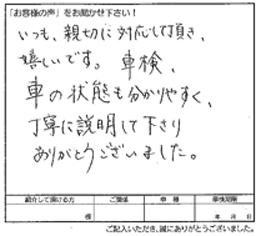 「お客様の声」をお聞かせ下さい!
いつも、親切に対応して頂き、
嬉しいです。車検、
車の状態も分かりやすく、
丁寧に説明して下さり
ありがとうございました。
紹介して頂ける方 ご関係 車種 車検期限
様 年 月 日
ご記入いただき、誠にありがとうございました。